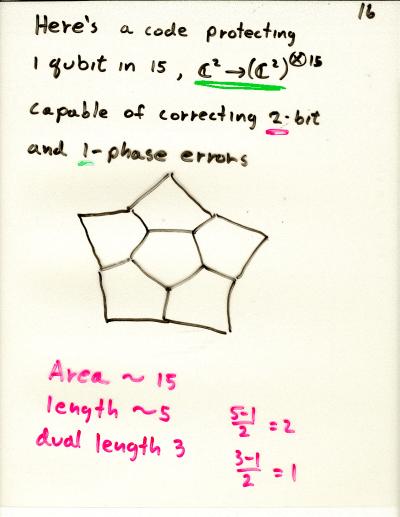 16
Here's a code protecting
1 qubit in 15, ℂ² → (ℂ²)^⊗15
capable of correcting 2-bit
and 1-phase errors
Area ~ 15
length ~ 5
dual length 3
5-1/2 = 2
3-1/2 = 1